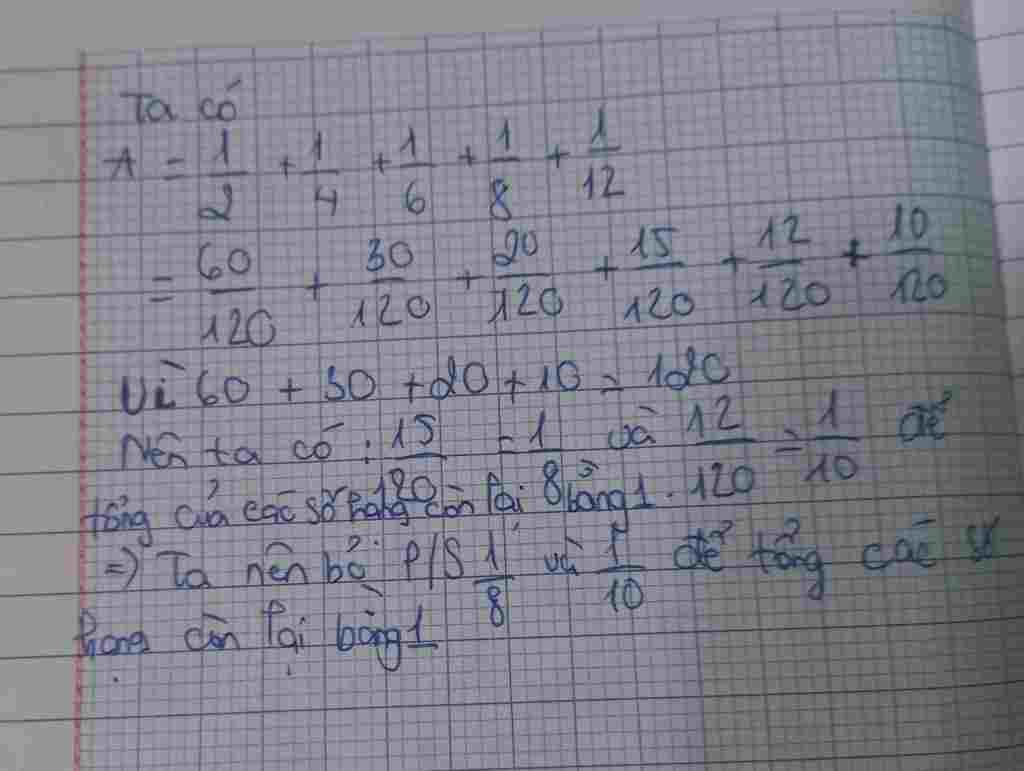 Ta có
A = 1/2 + 1/4 + 1/6 + 1/8 + 1/12
= 60/120 + 30/120 + 20/120 + 15/120 + 12/120 + 10/120
Vì 60 + 30 + 20 + 10 = 120
Nên ta có : 15/120 = 1/8 và 12/120 = 1/10 để
tổng của các số hạng còn lại bằng 1.
=> Ta nên bỏ P/S 1/8 và 1/10 để tổng các số
hạng còn lại bằng 1